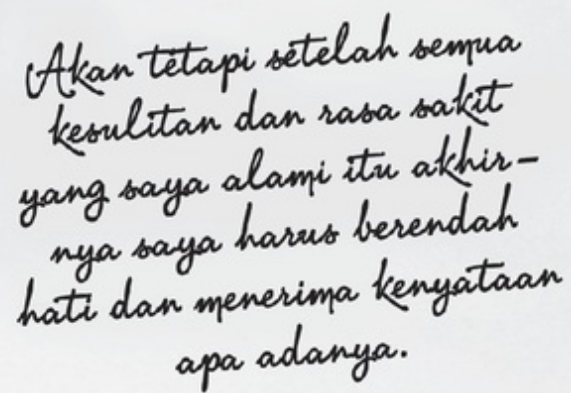 Akan tetapi setelah semua
kesulitan dan rasa sakit
yang saya alami itu akhir-
nya saya harus berendah
hati dan menerima kenyataan
apa adanya.